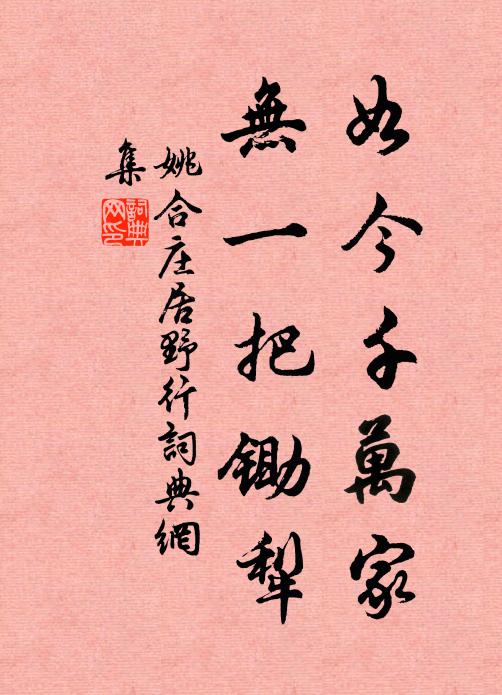 如今千萬家
無一把鋤犂
姚合庄居野行詞典網
集
詞典
网印